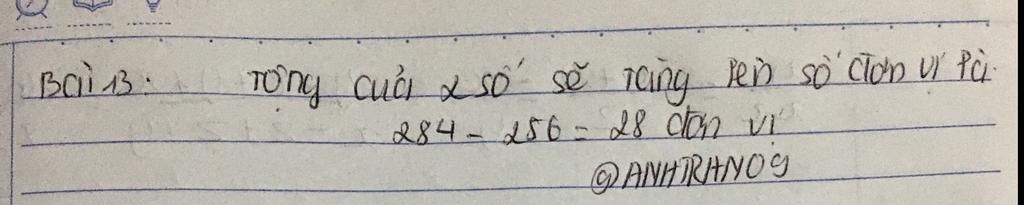 Bài 13: Tổng của 2 số sẽ tăng lên số đơn vị là:
284 - 256 = 28 đơn vị
@ANHTRAN09